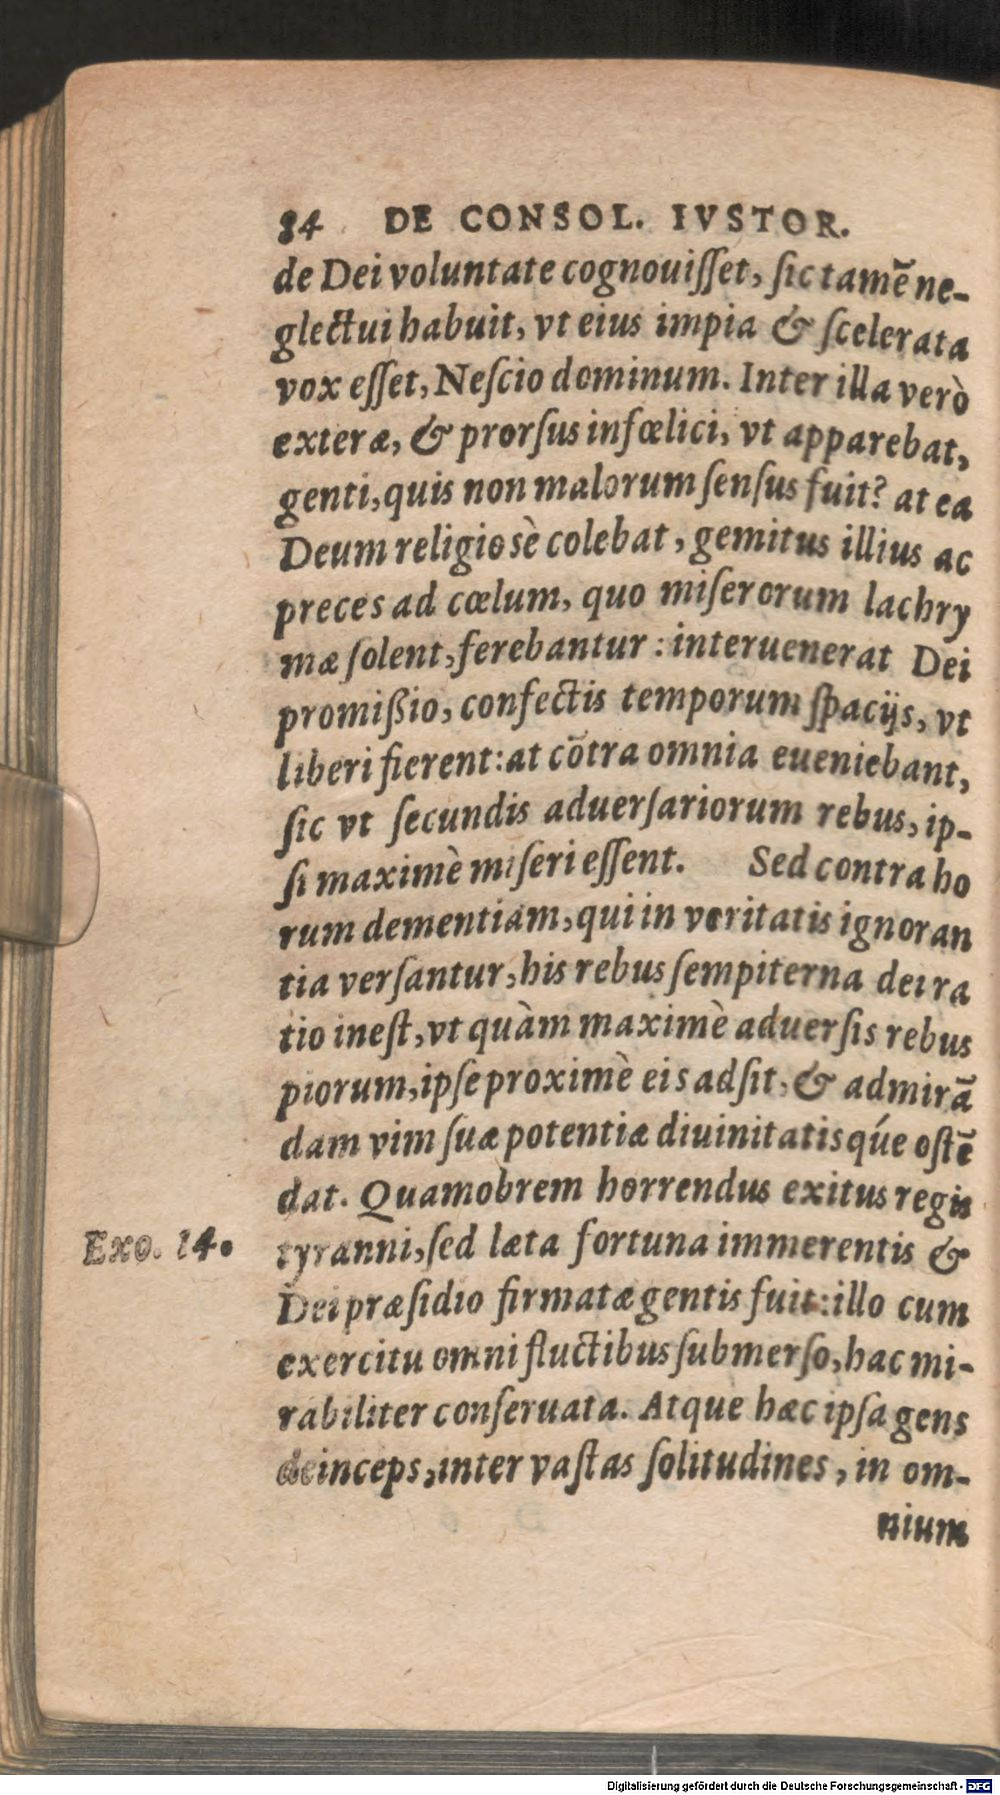 84 DE CONSOL. IVSTOR.
de Dei voluntate cognouiſſet, ſic tamē ne-
glectui habuit, vt eius impia & ſcelerata
vox eſſet, Neſcio dominum. Inter illa verò
exteræ, & prorſus infœlici, vt apparebat,
genti, quis non malorum ſenſus fuit? at ea
Deum religiosè colebat, gemitus illius ac
preces ad cœlum, quo miſerorum lachry
mæ ſolent, ferebantur: interuenerat Dei
promißio, confectis temporum ſpacijs, vt
liberi fierent: at cōtra omnia eueniebant,
ſic vt ſecundis aduerſariorum rebus, ip-
ſi maximè miſeri eſſent. Sed contra ho
rum dementiam, qui in veritatis ignoran
tia verſantur, his rebus ſempiterna dei ra
tio ineſt, vt quàm maximè aduerſis rebus
piorum, ipſe proximè eis adſit, & admirā
dam vim ſuæ potentiæ diuinitatisqúe oſtē
dat. Quamobrem horrendus exitus regis
Exo. 14. tyranni, ſed læta fortuna immerentis &
Dei præſidio firmatæ gentis fuit: illo cum
exercitu omni fluctibus ſubmerſo, hac mi-
rabiliter conſeruata. Atque hæc ipſa gens
deinceps, inter vaſtas ſolitudines, in om-
nium
Digitalisierung gefördert durch die Deutsche Forschungsgemeinschaft - DFG